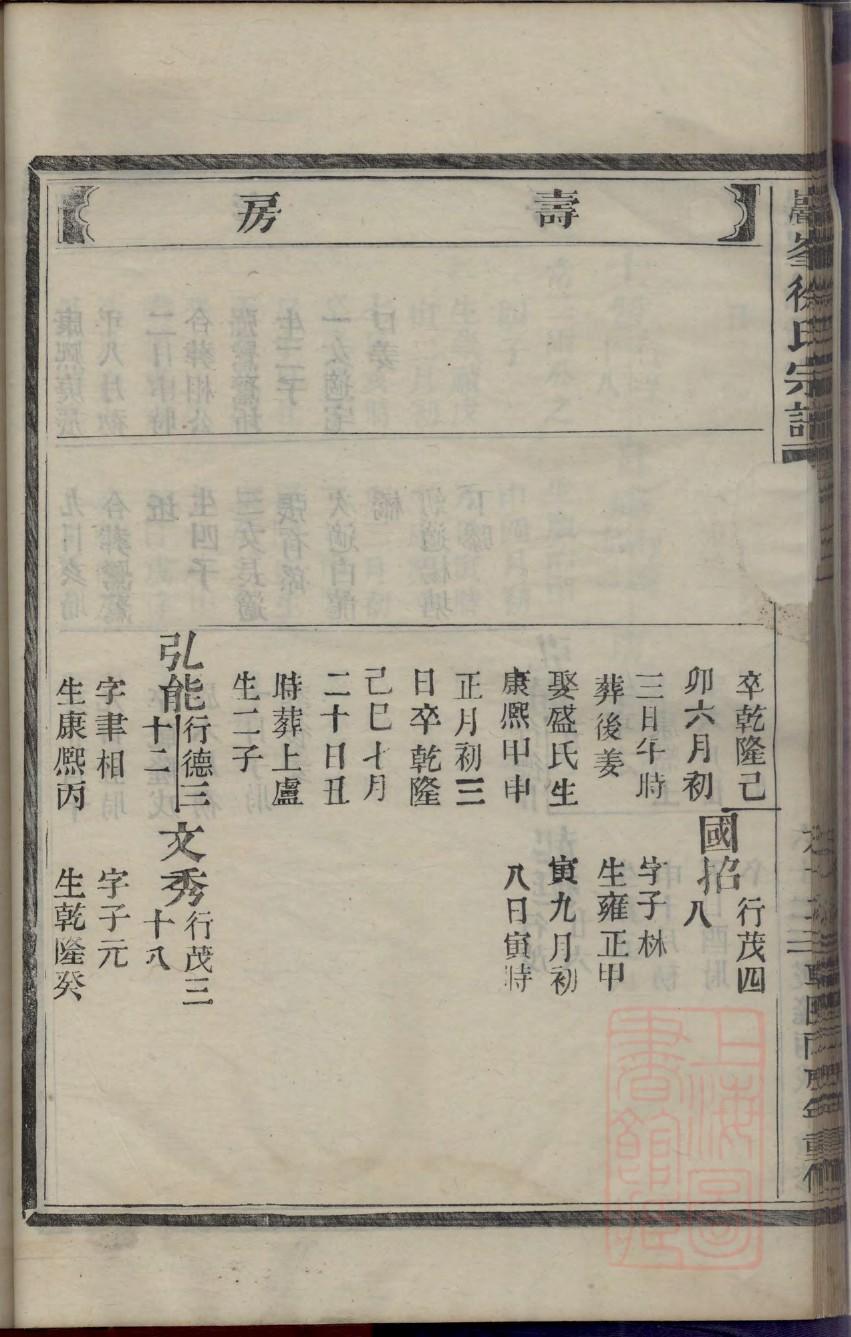 壽房
卒乾隆己
卯六月初
三日午時
葬後姜
娶盛氏生
康熙甲申
正月初三
日卒乾隆
己巳十月
二十日丑
時葬上盧
生二子
弘能行德三
十二
字聿相
生康熙丙
國招行茂四
八
字子林
生雍正甲
寅九月初
八日寅時
文秀行茂三
十八
字子元
生乾隆癸
徐氏宗譜
上海圖書館藏